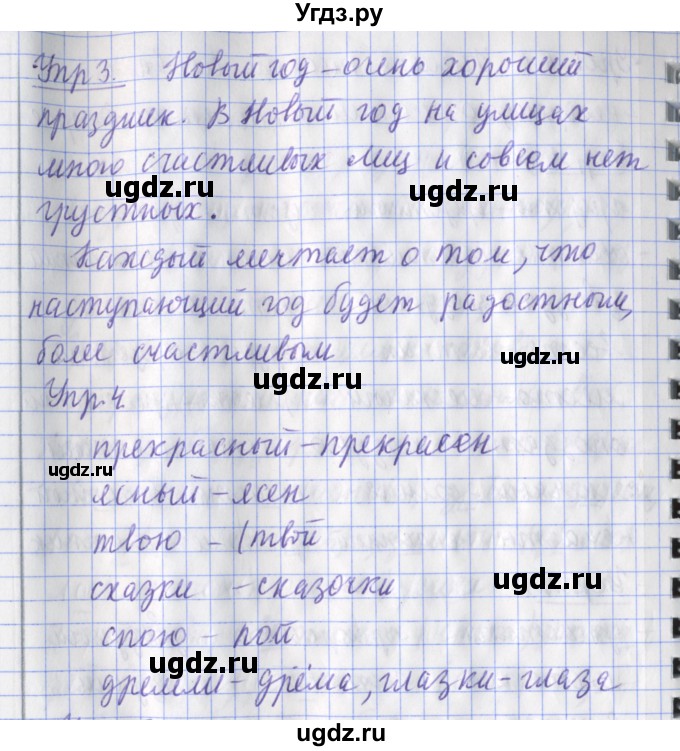 Угдз.ру
Упр 3. Новый год – очень хороший
праздник. В Новый год на улицах
много счастливых лиц и совсем нет
ugdz.ru ugdz.ru
грустных.
Каждый мечтает о том, что
наступающий год будет радостным,
ugdz.ru
более счастливым
ugdz.ru
Упр.4
прекрасный – прекрасен
ugdz.ru
ясный – ясен
твою – (твой
сказки – сказочки
ugdz.ru
спою – пой
ugdz.ru
дремли – дрёма, глазки – глаза
ugdz.ru ugdz.ru